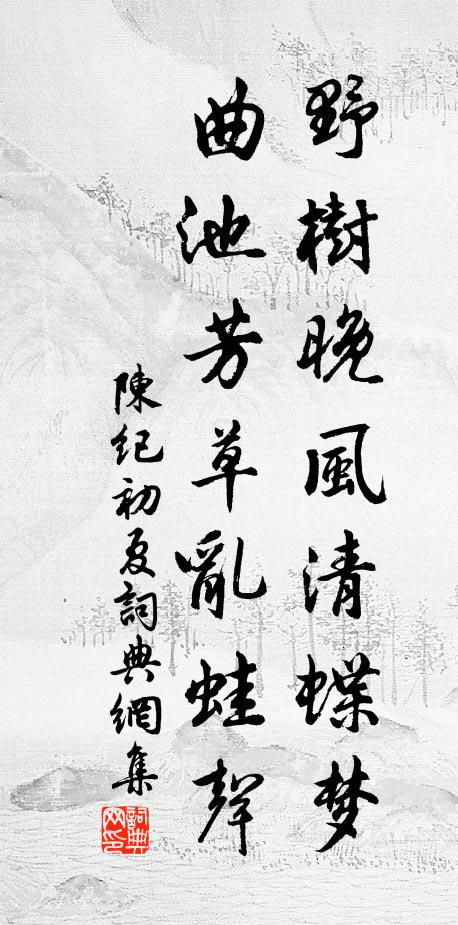 野樹晚風清蝶梦
曲池芳草亂蛙聲
陳纪初夏詞典網集
詞典网印